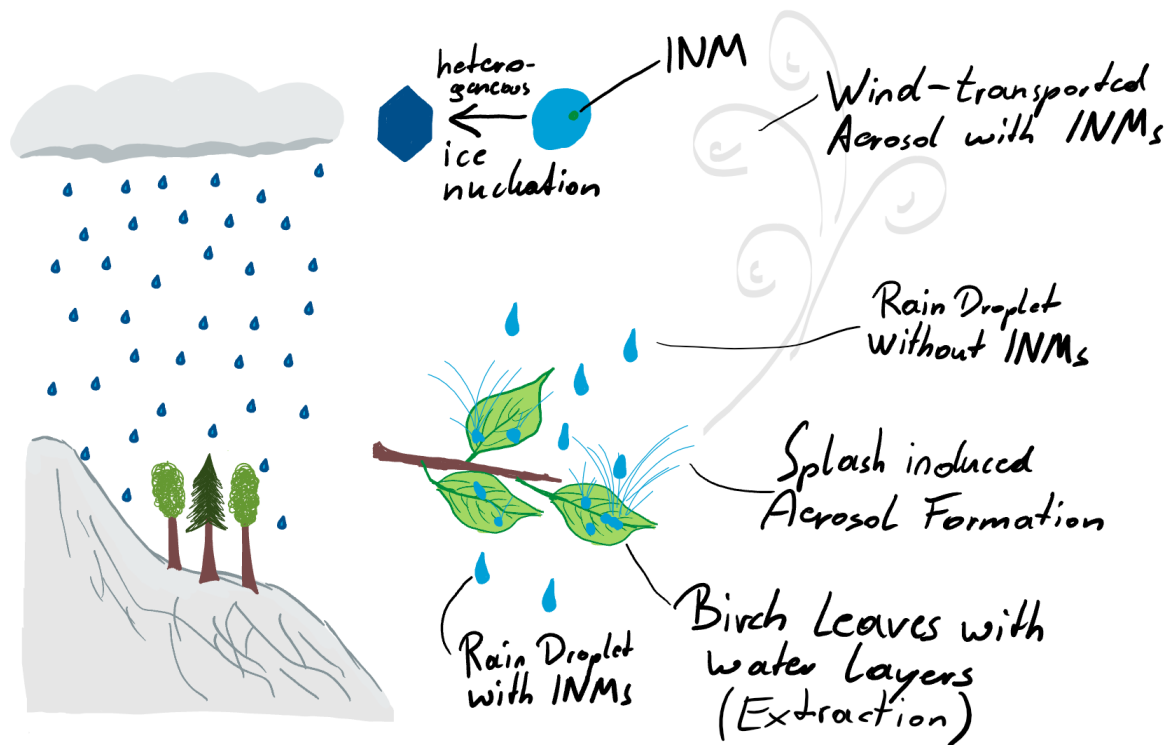 INM
hetero-
geneous
ice
nucleation
Wind-transported
Aerosol with INMs
Rain Droplet
without INMs
Splash induced
Aerosol Formation
Birch Leaves with
water Layers
(Extraction)
Rain Droplet
with INMs